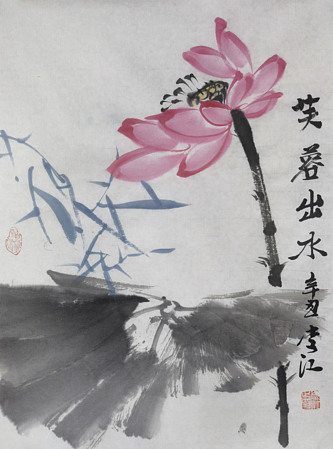 芙蓉出水 辛丑 李江